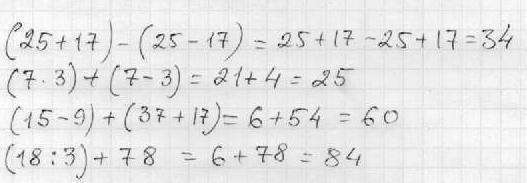 (25+17)-(25-17)=25+17-25+17=34
(7·3)+(7-3)=21+4=25
(15-9)+(37+17)=6+54=60
(18:3)+78=6+78=84